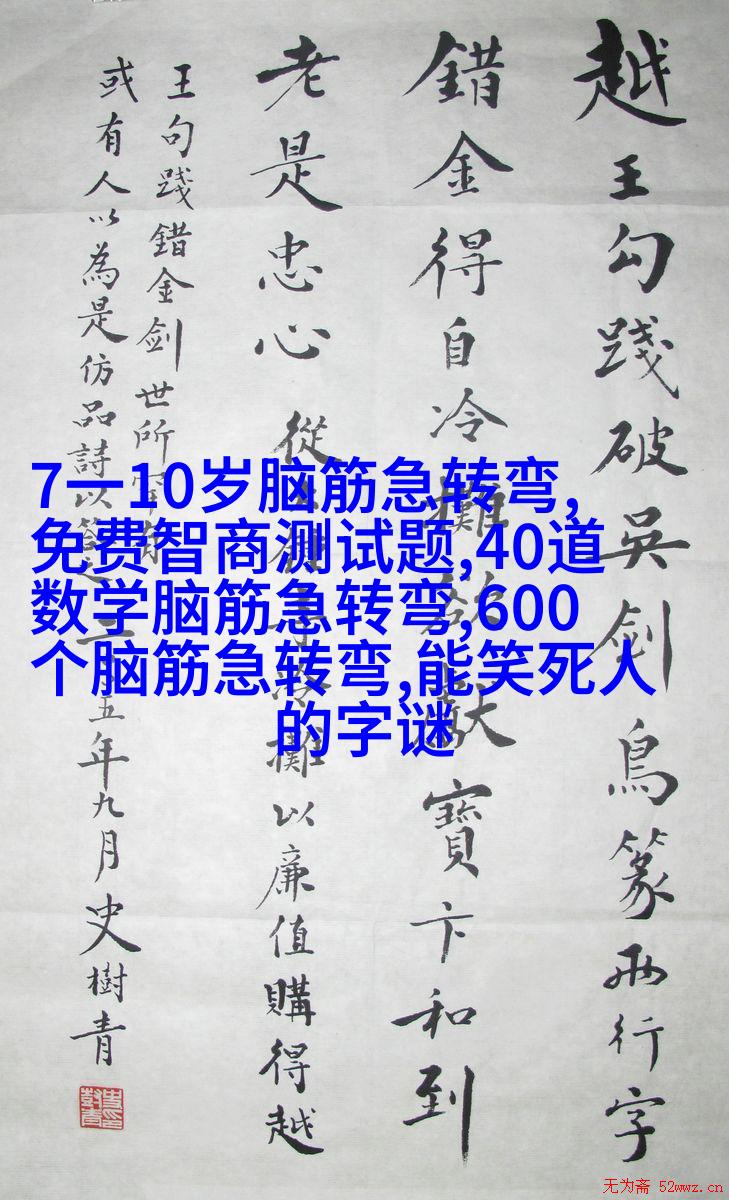 越王勾踐破吳剑鳥篆兩行字
錯金得自冷攤欲獻寶卞和到
老是忠心 從冷攤以廉值購得越
王句踐錯金剑世所罕
或有人以為是仿品詩以答之 五年九月史樹青
7一10岁脑筋急转弯,
免费智商测试题,40道
数学脑筋急转弯,600
个脑筋急转弯,能笑死人
的字谜
无为斋 52wwz.cn